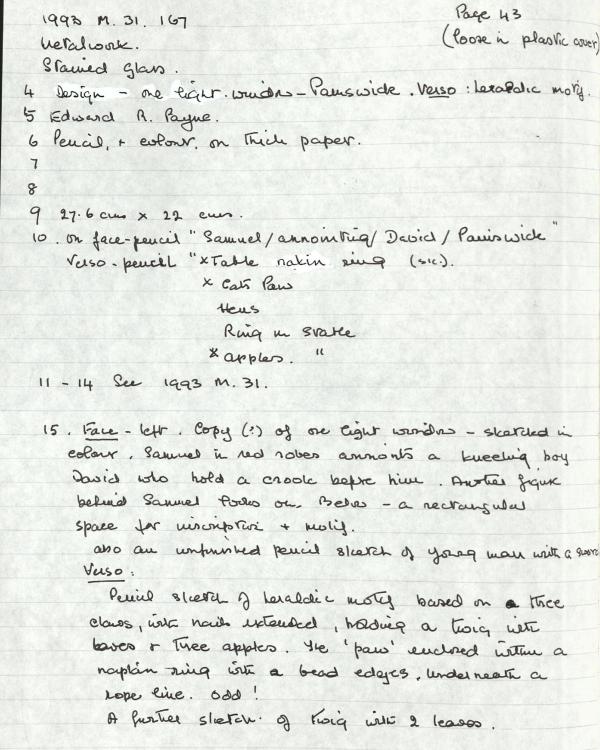 1993 M. 31. 167
Page 43
(loose in plastic cover)
Metalwork.
Stained Glass.
4 Design - one light window - Painswick. Verso: heraldic motif.
5 Edward R. Payne.
6 Pencil, + colour, on thick paper.
7
8
9 27.6 cms x 22 cms.
10. on face-pencil "Samuel/annointing/David/Painswick"
Verso-pencil "x Table nakin ring (sic.).
x Cats Paw
Hens
Ring in stable
x apples. "
11 - 14 See 1993 M. 31.
15. Face - left. Copy (?) of one light window - sketched in
colour. Samuel in red robes annoints a kneeling boy
David who hold a crook before him. Another figure
behind Samuel looks on. Below - a rectangular
space for inscription + motif.
also an unfinished pencil sketch of young man with a sword
Verso:
Pencil sketch of heraldic motif based on a three
claws, with nails extended, holding a twig with
leaves + three apples. The 'paw' enclosed within a
napkin ring with a bead edges, underneath a
rope line. Odd!
A further sketch of twig with 2 leaves.